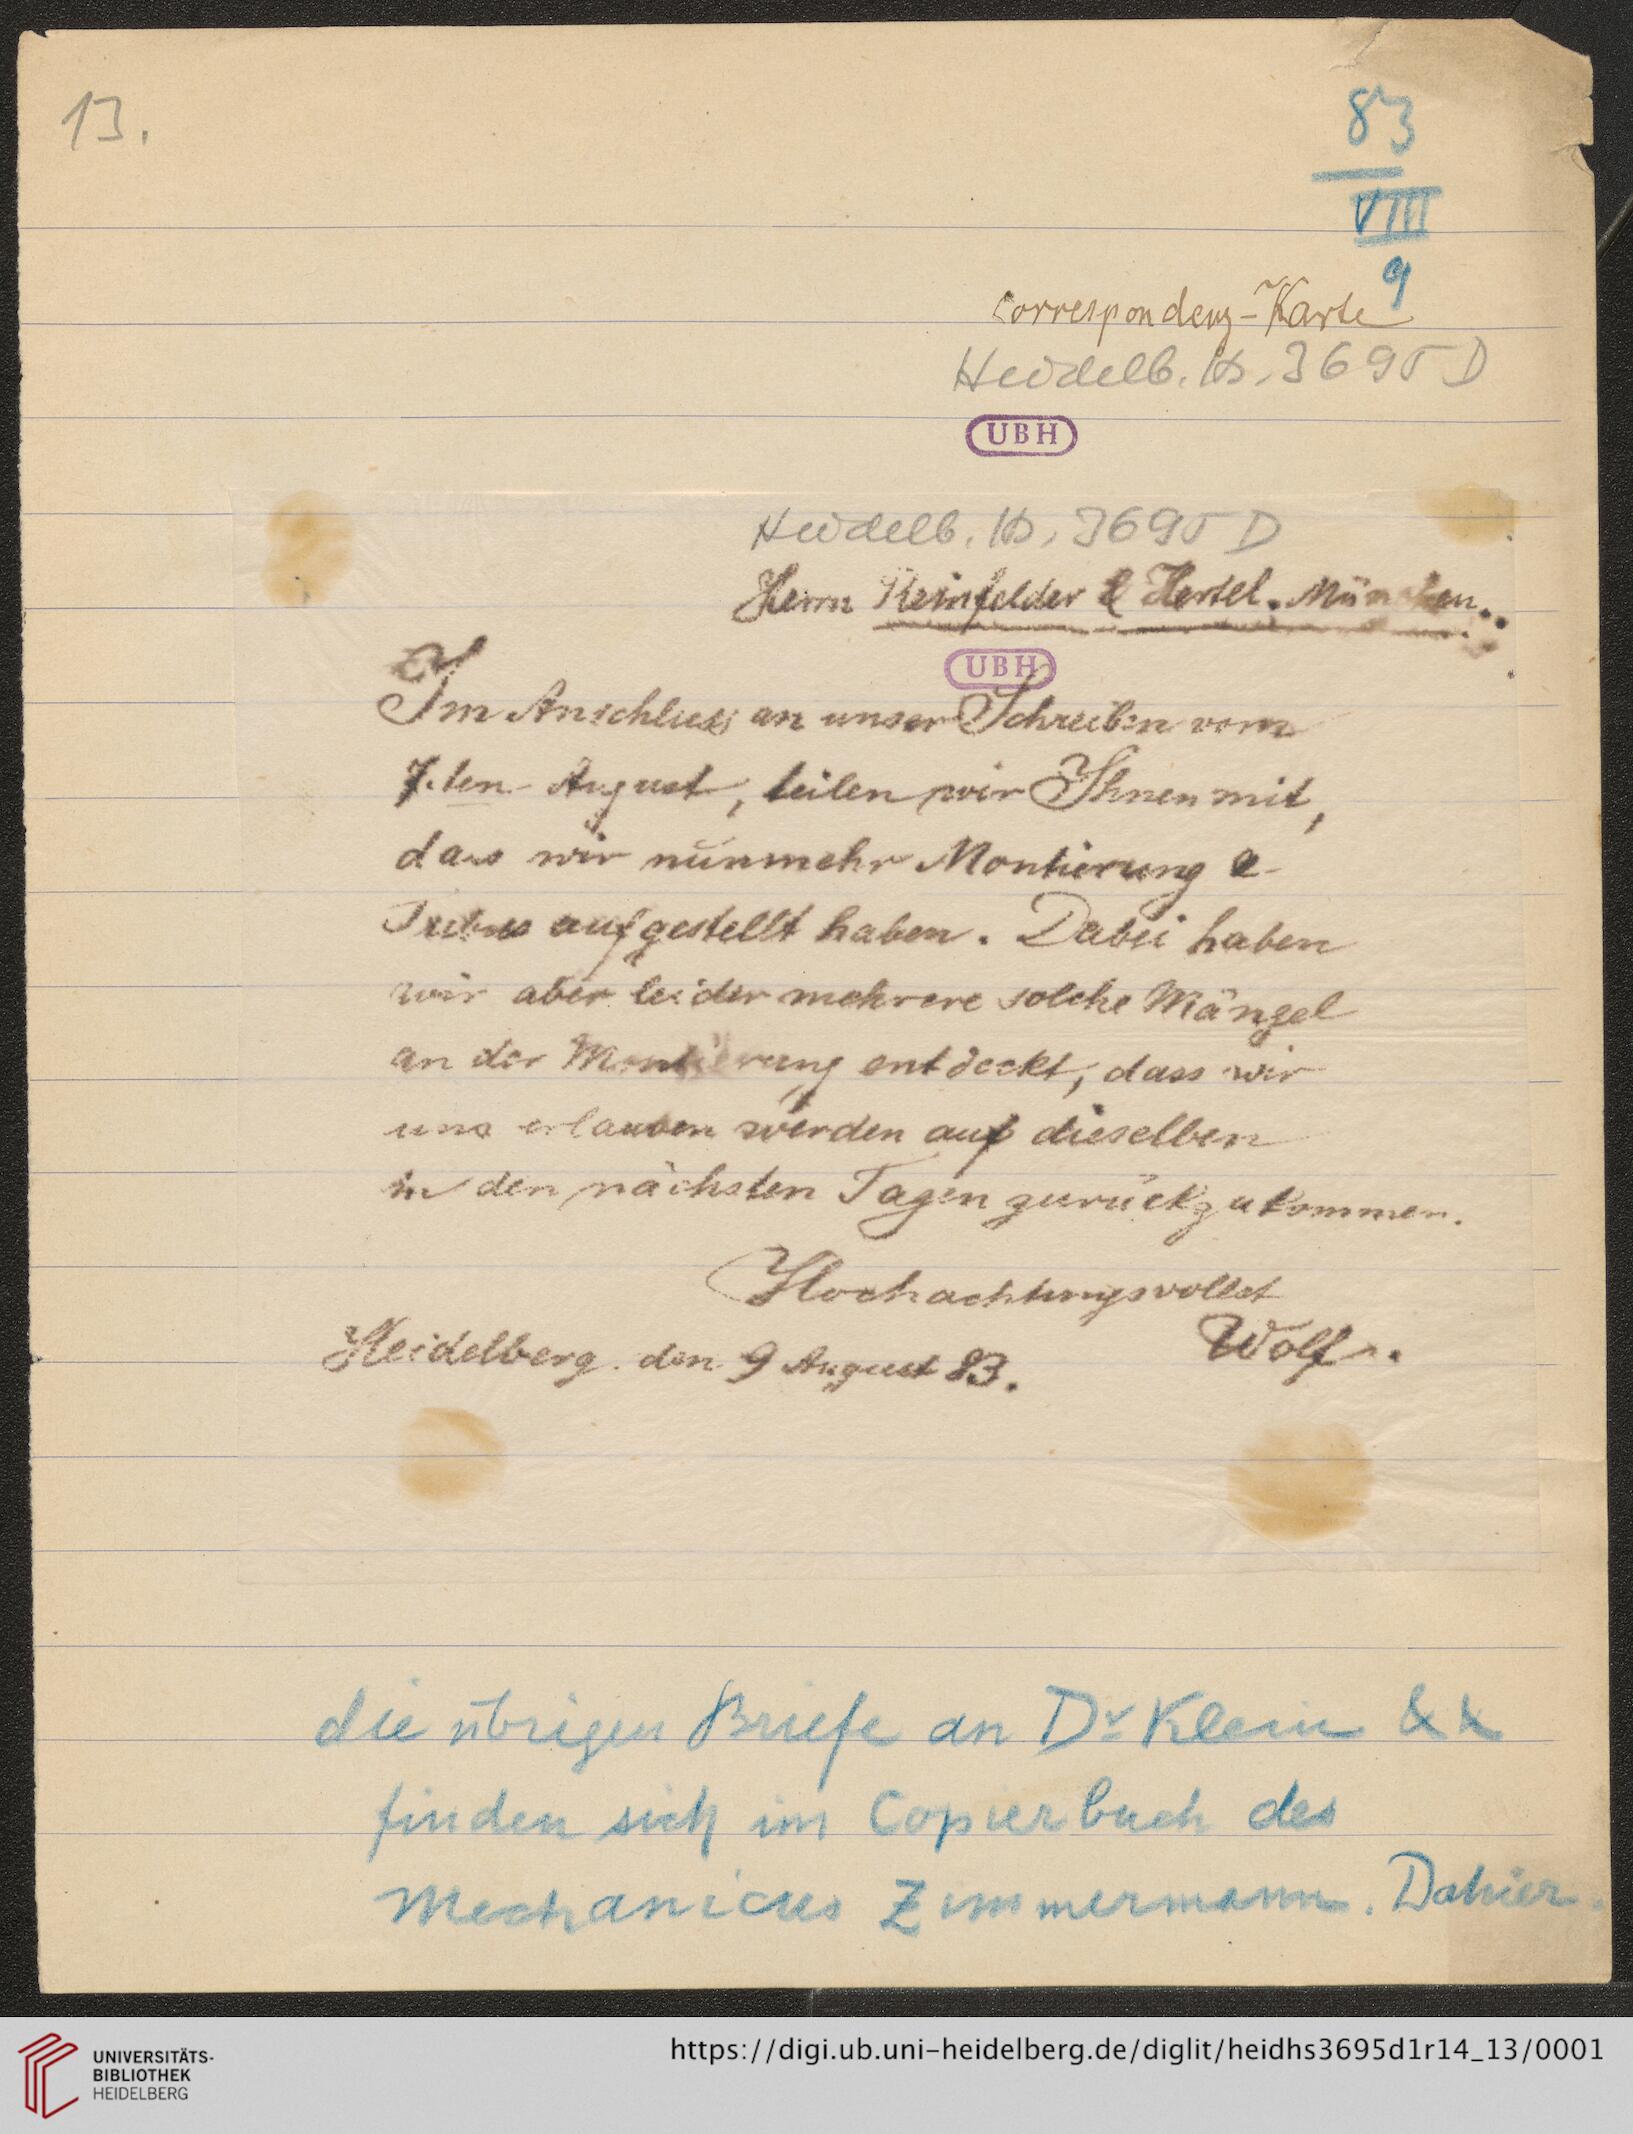 13.
83
VIII
9
Correspondenz-Karte
Heidelb. Hs. 3695 D
UBH
Heidelb. Hs. 3695 D
Herrn Reinfelder & Hertel. München.
UBH
Im Anschluss an unser Schreiben vom
7.ten August, teilen wir Ihnen mit,
dass wir nunmehr Montierung &
Tubus aufgestellt haben. Dabei haben
wir aber leider mehrere solche Mängel
an der Montierung entdeckt, dass wir
uns erlauben werden auf dieselben
in den nächsten Tagen zurückzukommen.
Hochachtungsvollst
Wolf
Heidelberg. den 9 August 83.
die übrigen Briefe an Dr Klein &&
finden sich im Copierbuch des
Mechanicus Zimmermann. Dahier.
UNIVERSITÄTS-
BIBLIOTHEK
HEIDELBERG
https://digi.ub.uni-heidelberg.de/diglit/heidhs3695d1r14_13/0001